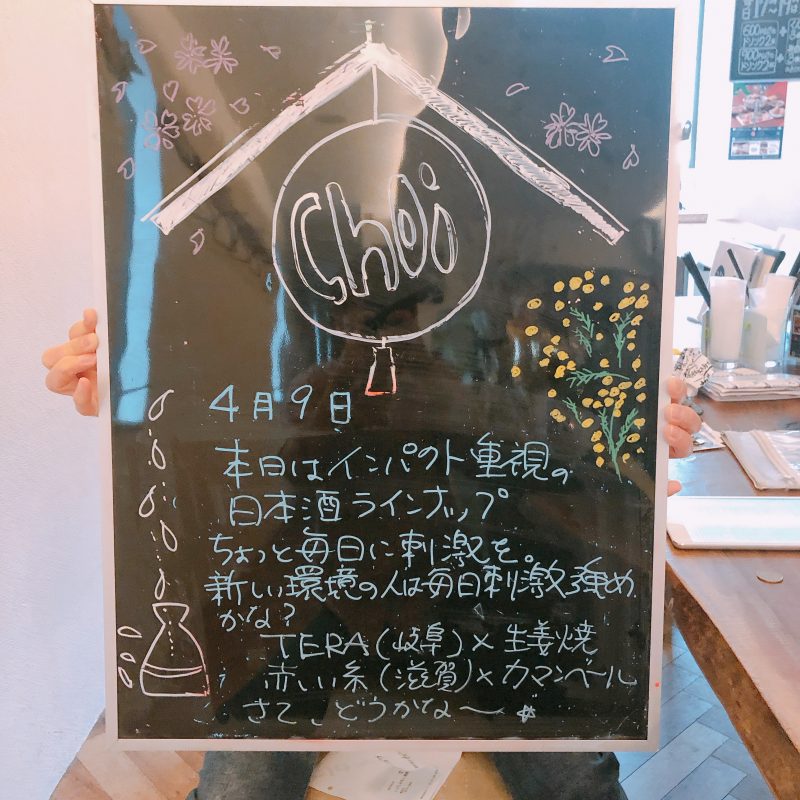 Choi
4月9日
本日はインパクト重視の
日本酒ラインナップ
ちょっと毎日に刺激を。
新しい環境の人は毎日刺激強め
かな?
TERA(岐阜)×生姜焼
赤い糸(滋賀)×カマンベール
さて、どうかな〜☆